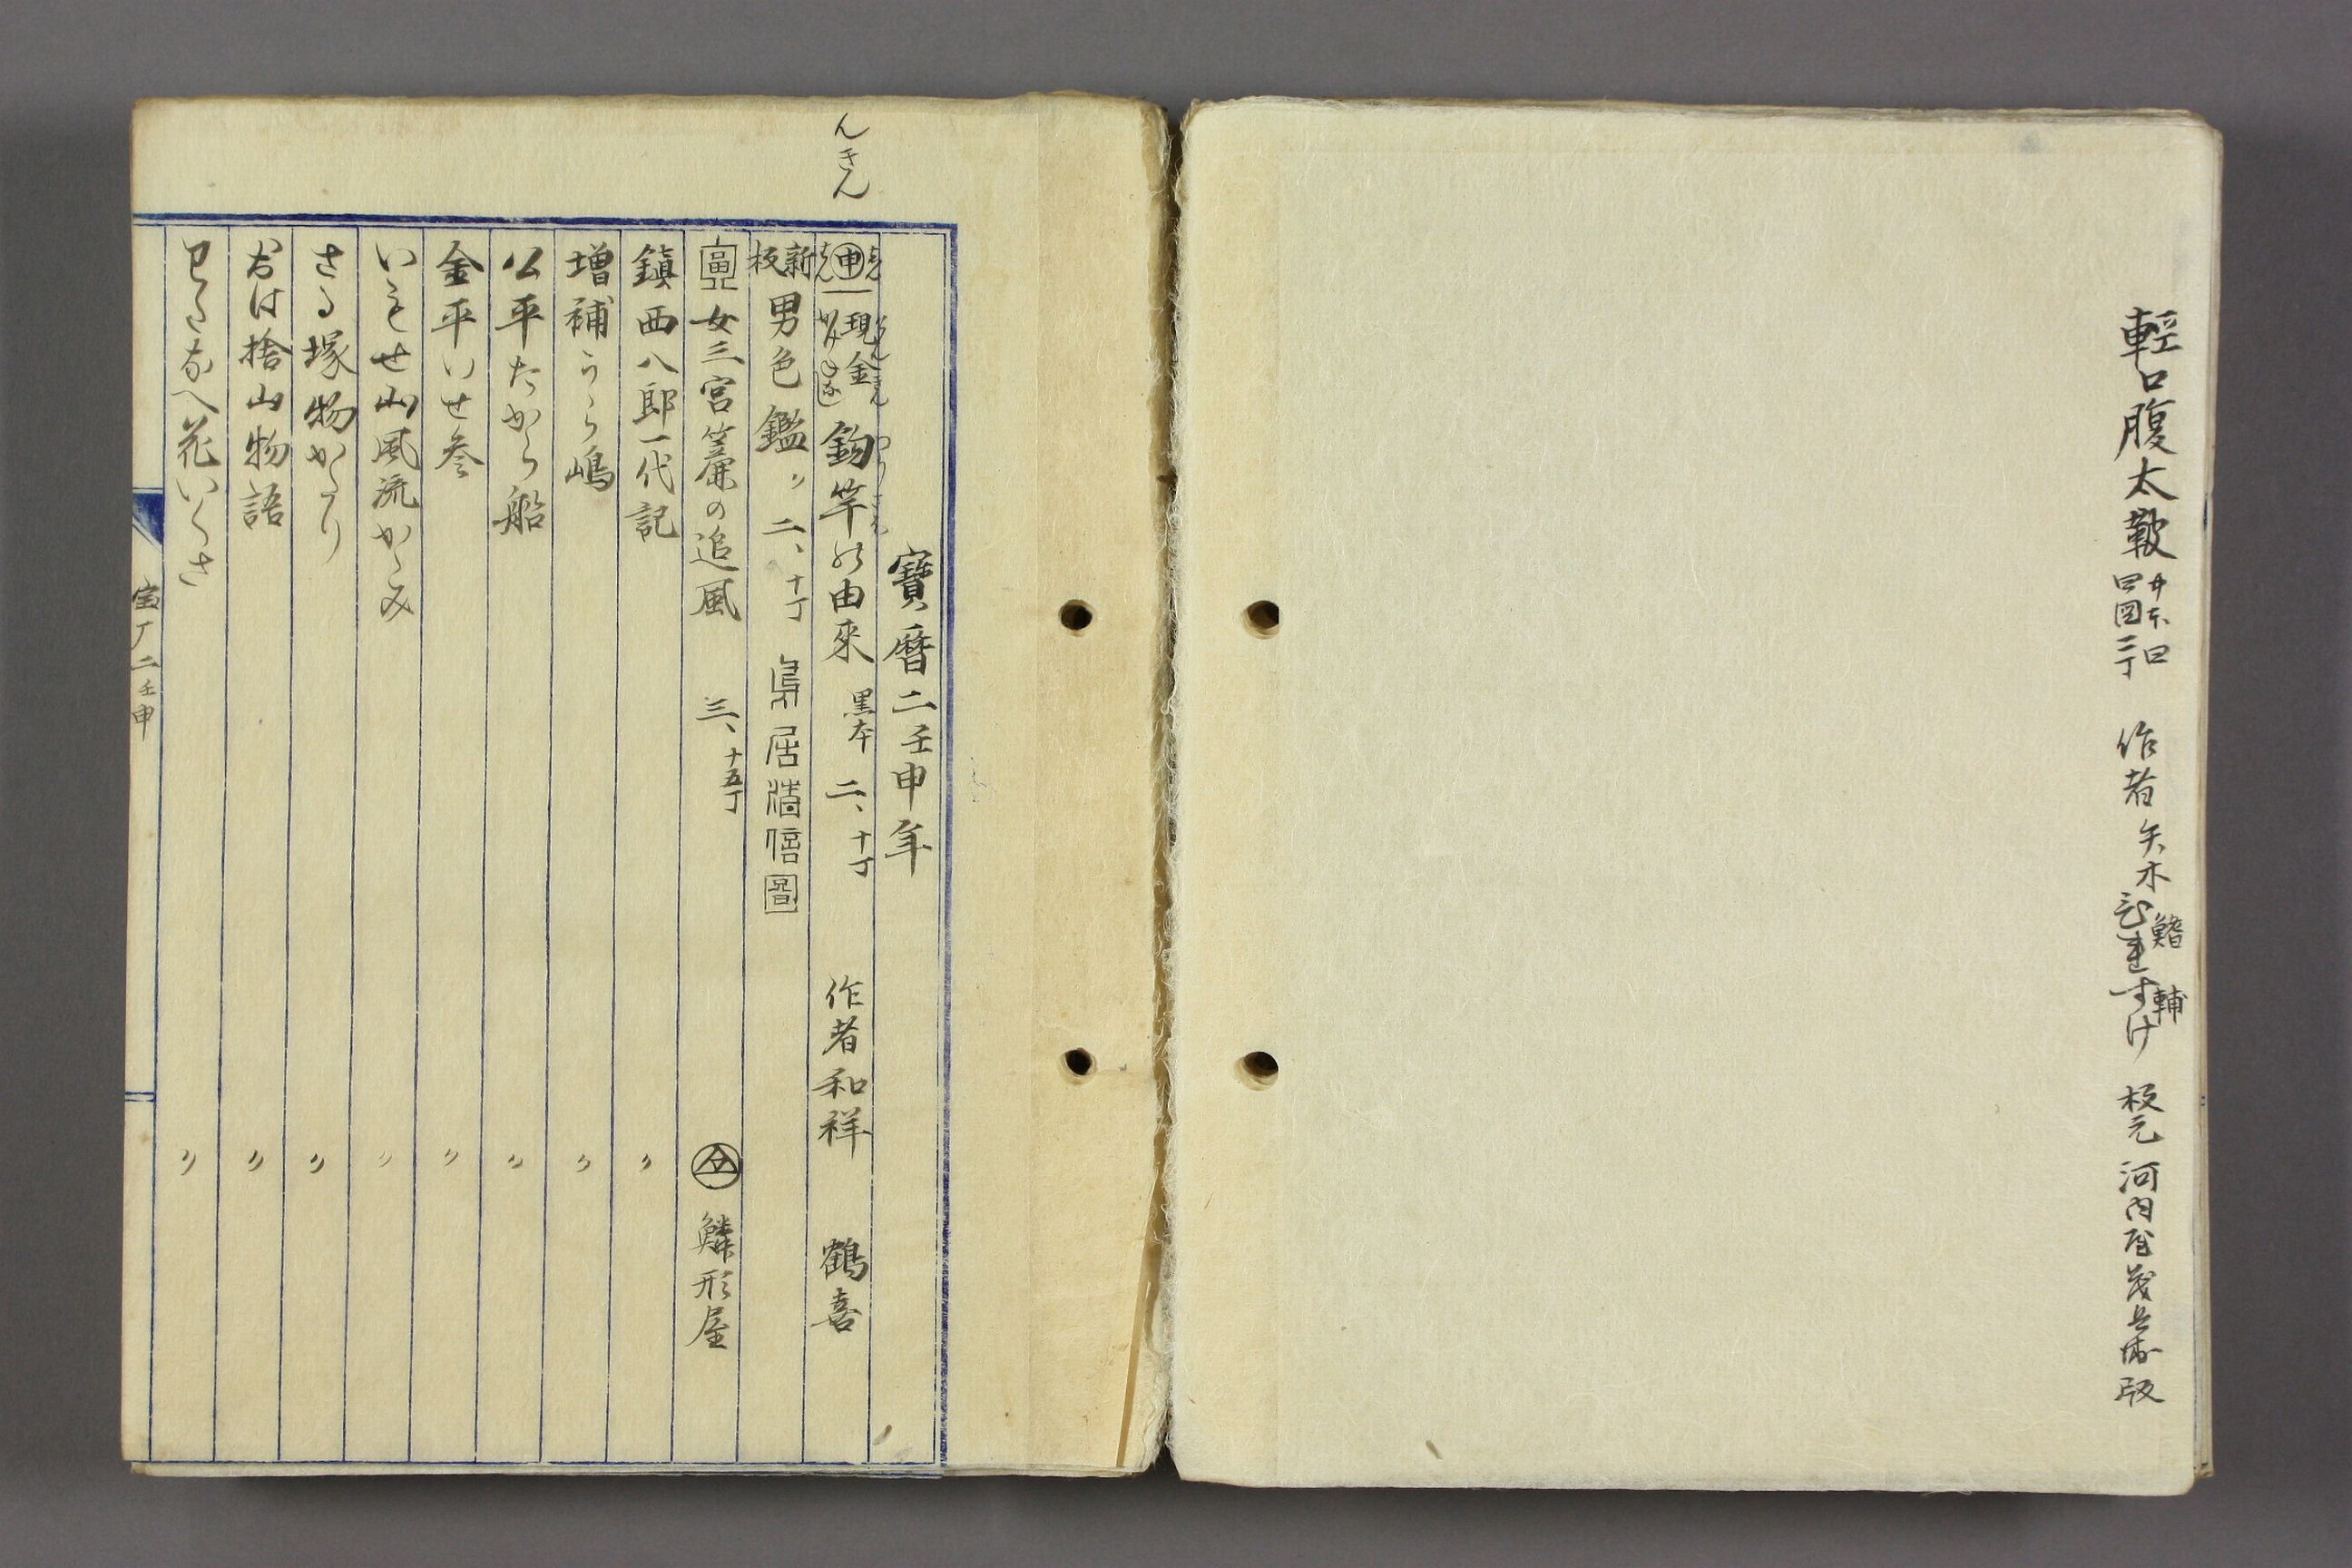 輕口腹太皷 廿本口四図二丁 作者 矢木ひれすけ 板元 河内屋茂兵衛版
鰭 輔
んきん
寶暦二壬申年
申 現金 釣竿の由來 黒本 二、十丁 作者和祥 鶴喜
新板 男色鑑 〃 二、十丁 鳥居清倍圖
女三宮簾の追風 三、十五丁 鱗形屋
鎮西八郎一代記 〃
増補うら嶋 〃
公平たから船 〃
金平いせ参 〃
いもせ山風流かゝみ 〃
さる塚物かたり 〃
おは捨山物語 〃
花いくさ 〃
宝丁二壬申